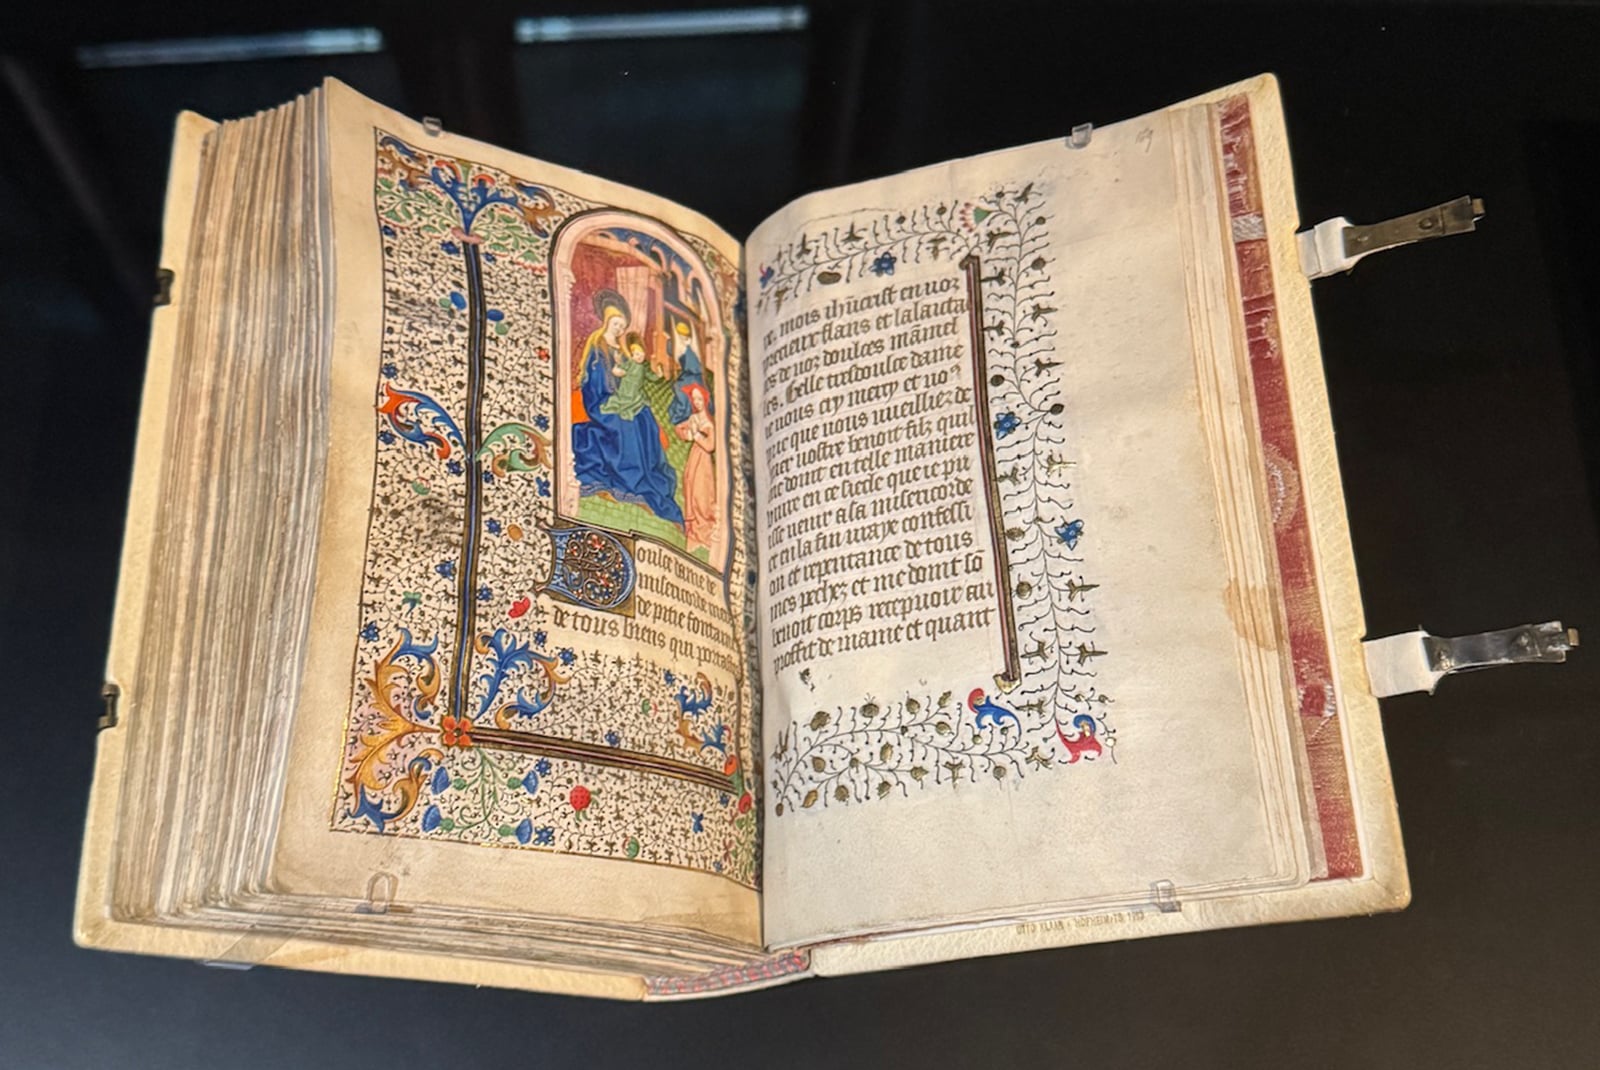 Doulce dame de
misericorde me
de pitie fontaine
de tous biens qui portastes
ix. mois ihūcrist en uoz
precieux flans et lalaita
de uoz doulces māmel
les. Belle tresdoulce dame
ie uous cry mercy et uo⁹
que uous uueilliez de
uostre benoit filz quil
me doint en telle maniere
uiure en ce siecle que ie pu
isse uenir a sa misericorde
et en la fin uraye confessi
on et repentance de tous
mes pechez et me doint sō
benoit corps recepuoir au
proffit de mame et quant
OTTO KLAAR